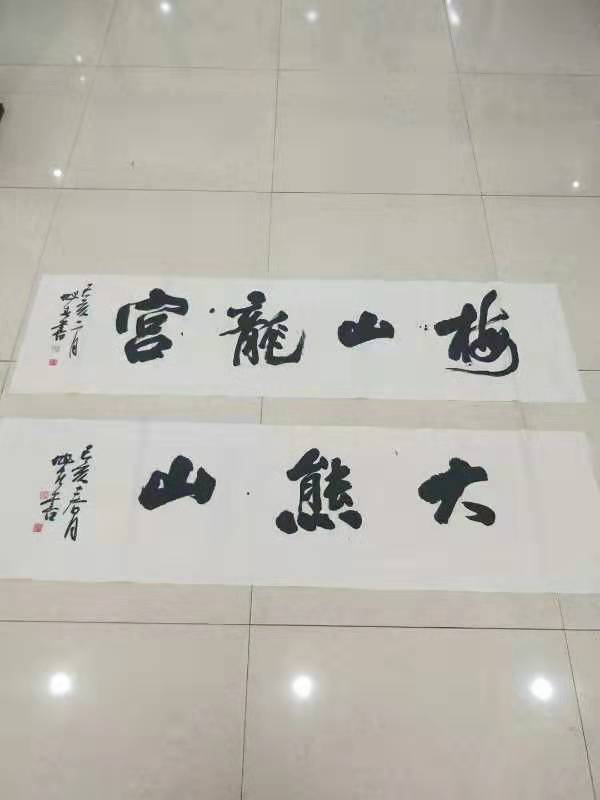 梅山龍宮
己亥二月
書
大熊山
己亥春月
書